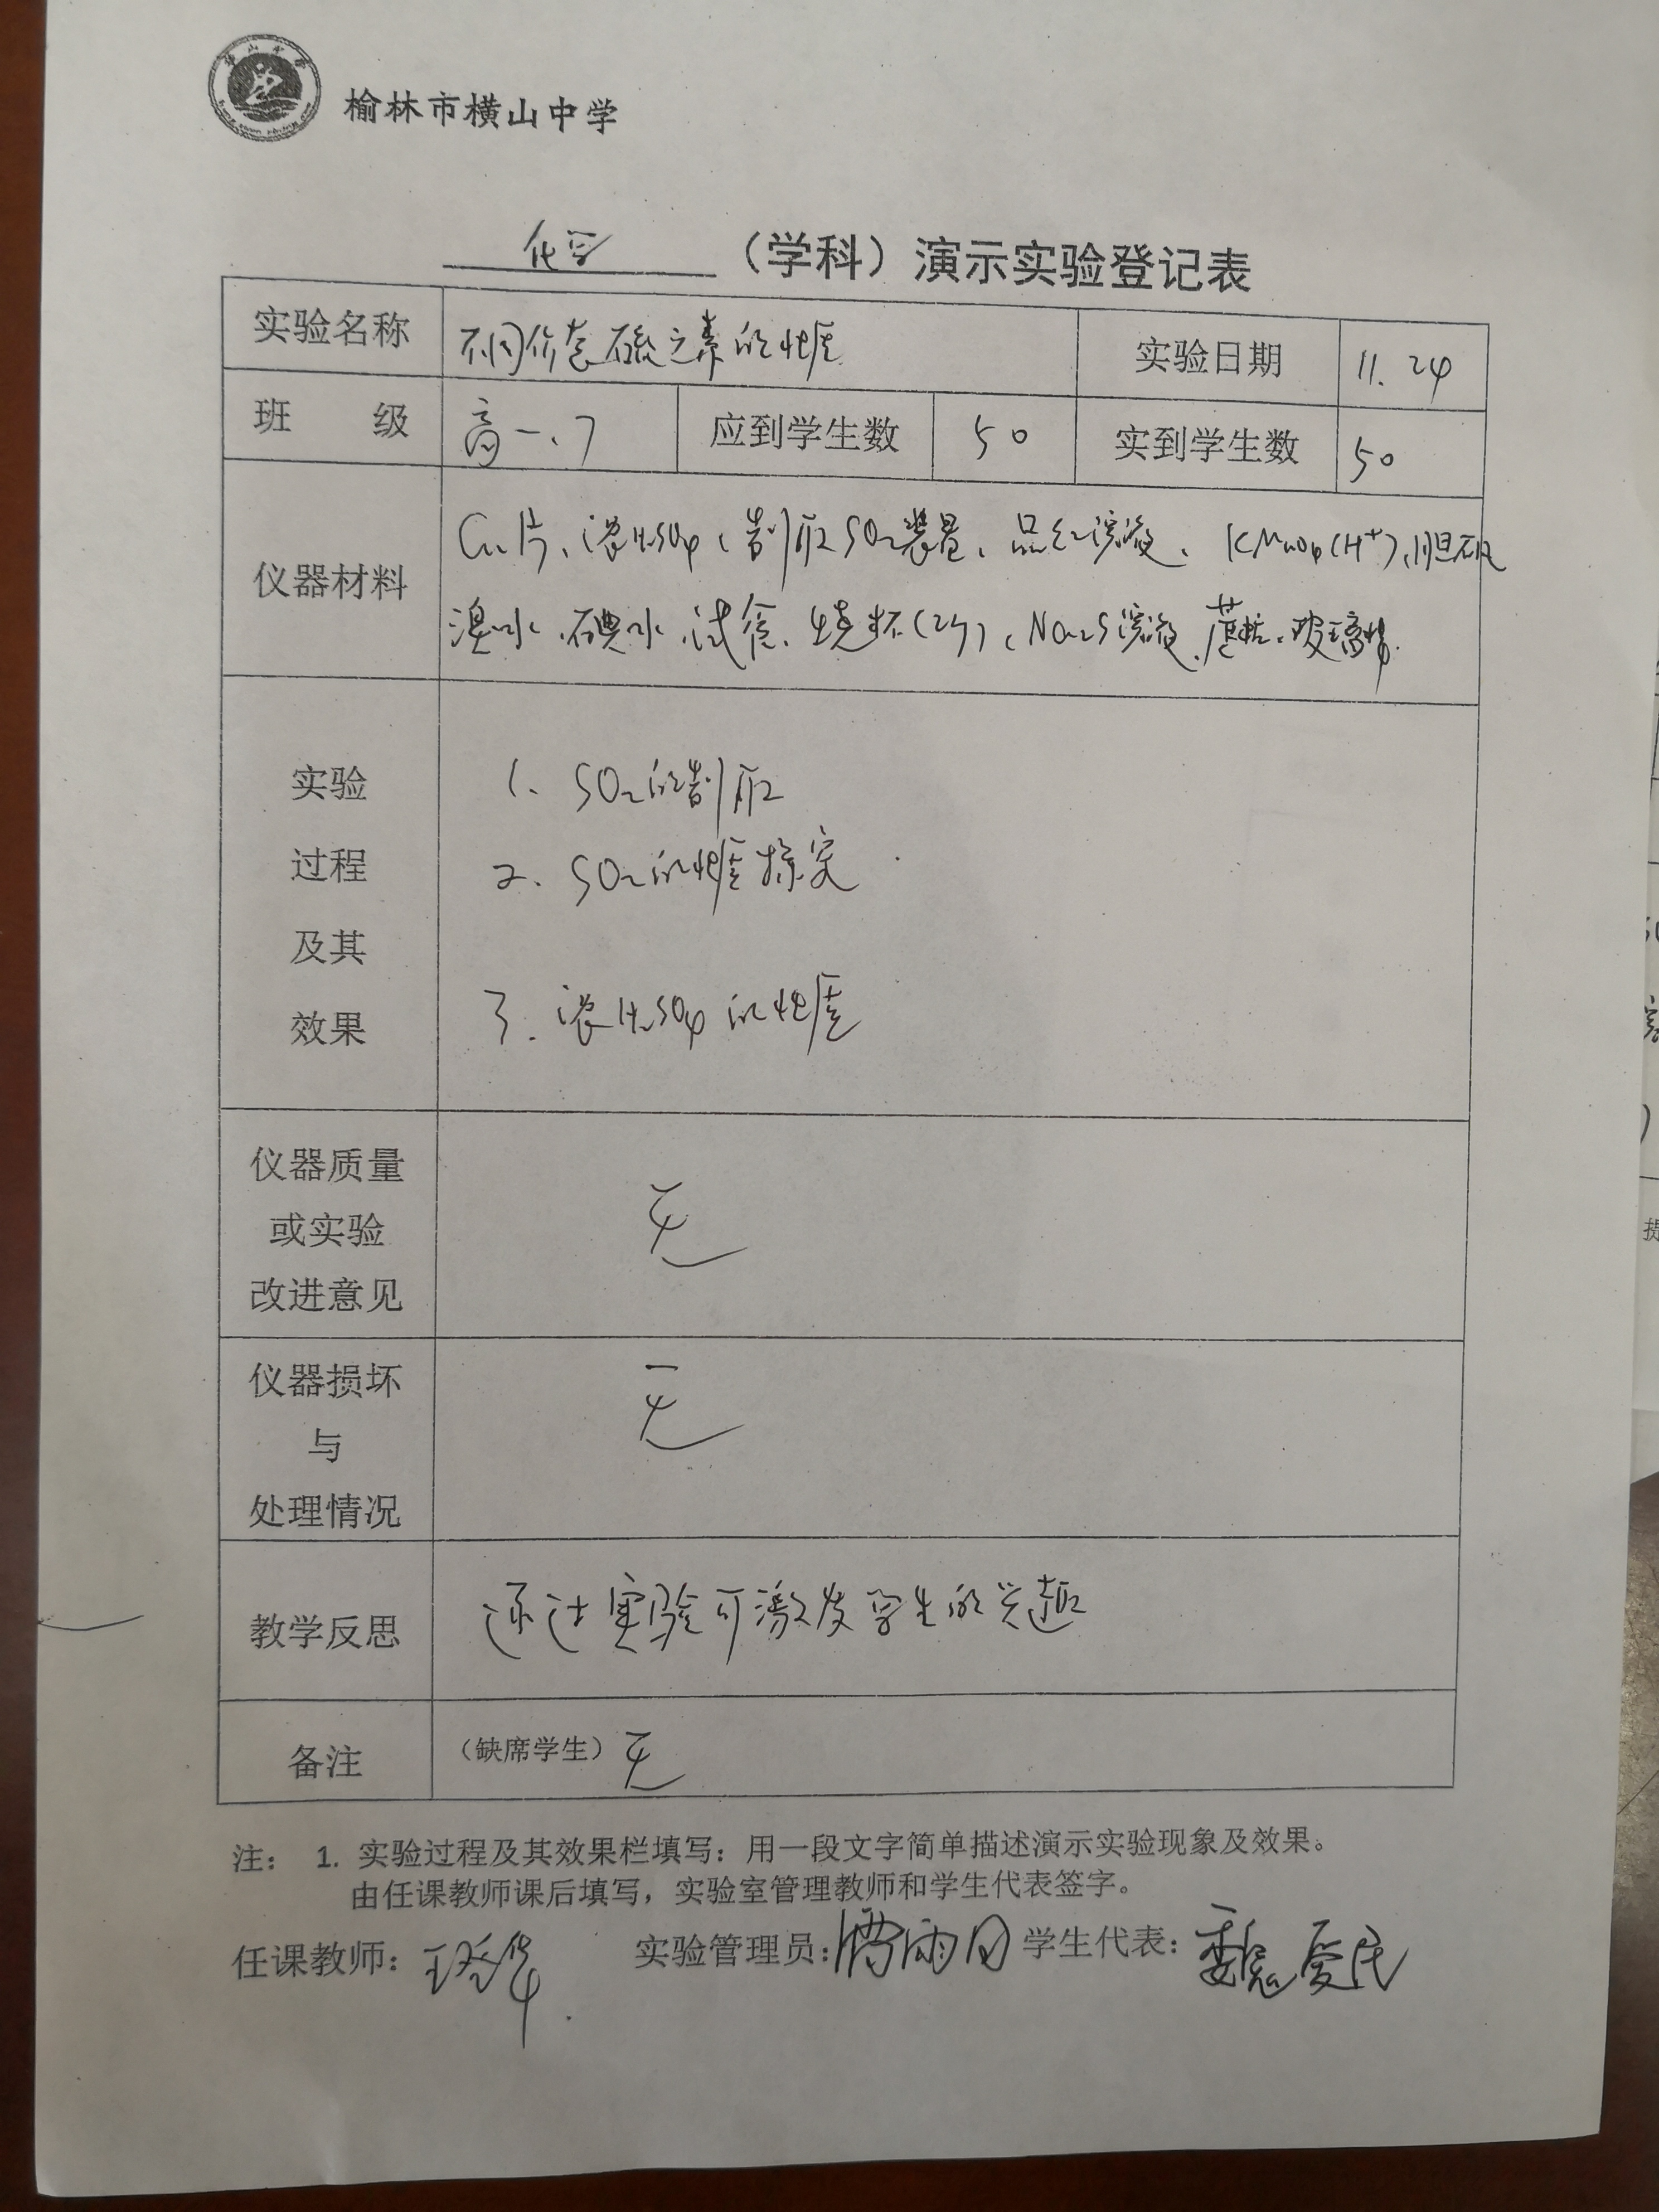 榆林市横山中学
化学（学科）演示实验登记表
实验名称 不同价态硫元素的性质 实验日期 11.24
班 级 高一.7 应到学生数 50 实到学生数 50
仪器材料
Cu片、浓H2SO4、制取SO2装置、品红溶液、KMnO4(H+)、胆矾
溴水、碘水、试管、烧杯(2个)、Na2S溶液、蔗糖、玻璃棒.
实验
过程
及其
效果
1. SO2的制取
2. SO2的性质探究
3. 浓H2SO4的性质
仪器质量
或实验
改进意见
无
仪器损坏
与
处理情况
无
教学反思 通过实验可激发学生的兴趣
备注 （缺席学生）无
注： 1. 实验过程及其效果栏填写：用一段文字简单描述演示实验现象及效果。
由任课教师课后填写，实验室管理教师和学生代表签字。
任课教师： 实验管理员： 学生代表：魏爱民